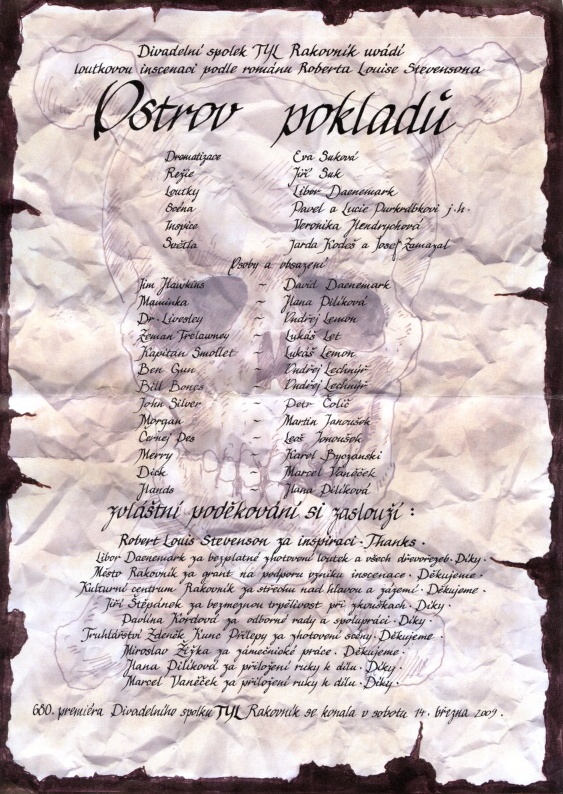 Divadelní spolek TYL Rakovník uvádí
loutkovou inscenaci podle románu Roberta Louise Stevensona
Ostrov pokladů
Dramatizace Eva Suková
Režie Jiří Suk
Loutky Libor Daenemark
Scéna Pavel a Lucie Purkrábkovi j.h.
Inspice Veronika Hendrychová
Světla Jarda Kodeš a Josef Zamazal
Osoby a obsazení
Jim Hawkins ~ David Daenemark
Maminka ~ Hana Dilíková
Dr. Livesley ~ Ondřej Lemon
Zeman Trelawney ~ Lukáš Let
Kapitán Smollet ~ Lukáš Lemon
Ben Gun ~ Ondřej Lechnýř
Bill Bones ~ Ondřej Lechnýř
John Silver ~ Petr Čolič
Morgan ~ Martin Janoušok
Černej Pes ~ Leoš Jonoušok
Merry ~ Karol Byozanski
Dick ~ Marcel Vaněček
Hands ~ Hana Dilíková
zvláštní poděkování si zaslouží :
Robert Louis Stevenson za inspiraci · Thanks ·
Libor Daenemark za bezplatné zhotovení loutek a všech dřevořezeb · Díky ·
Město Rakovník za grant na podporu vzniku inscenace · Děkujeme ·
Kulturní centrum Rakovník za střechu nad hlavou a zázemí · Děkujeme ·
Jiří Štěpánek za bezmeznou trpělivost při zkouškách · Díky ·
Pavlína Kordová za odborné rady a spolupráci · Díky ·
Truhlářství Zdeněk Kunc Přílepy za zhotovení scény · Děkujeme ·
Miroslav Žižka za zámečnické práce · Děkujeme ·
Hana Dilíková za přiložení ruky k dílu · Díky ·
Marcel Vaněček za přiložení ruky k dílu · Díky ·
680. premiéra Divadelního spolku TYL Rakovník se konala v sobotu 14. března 2009.